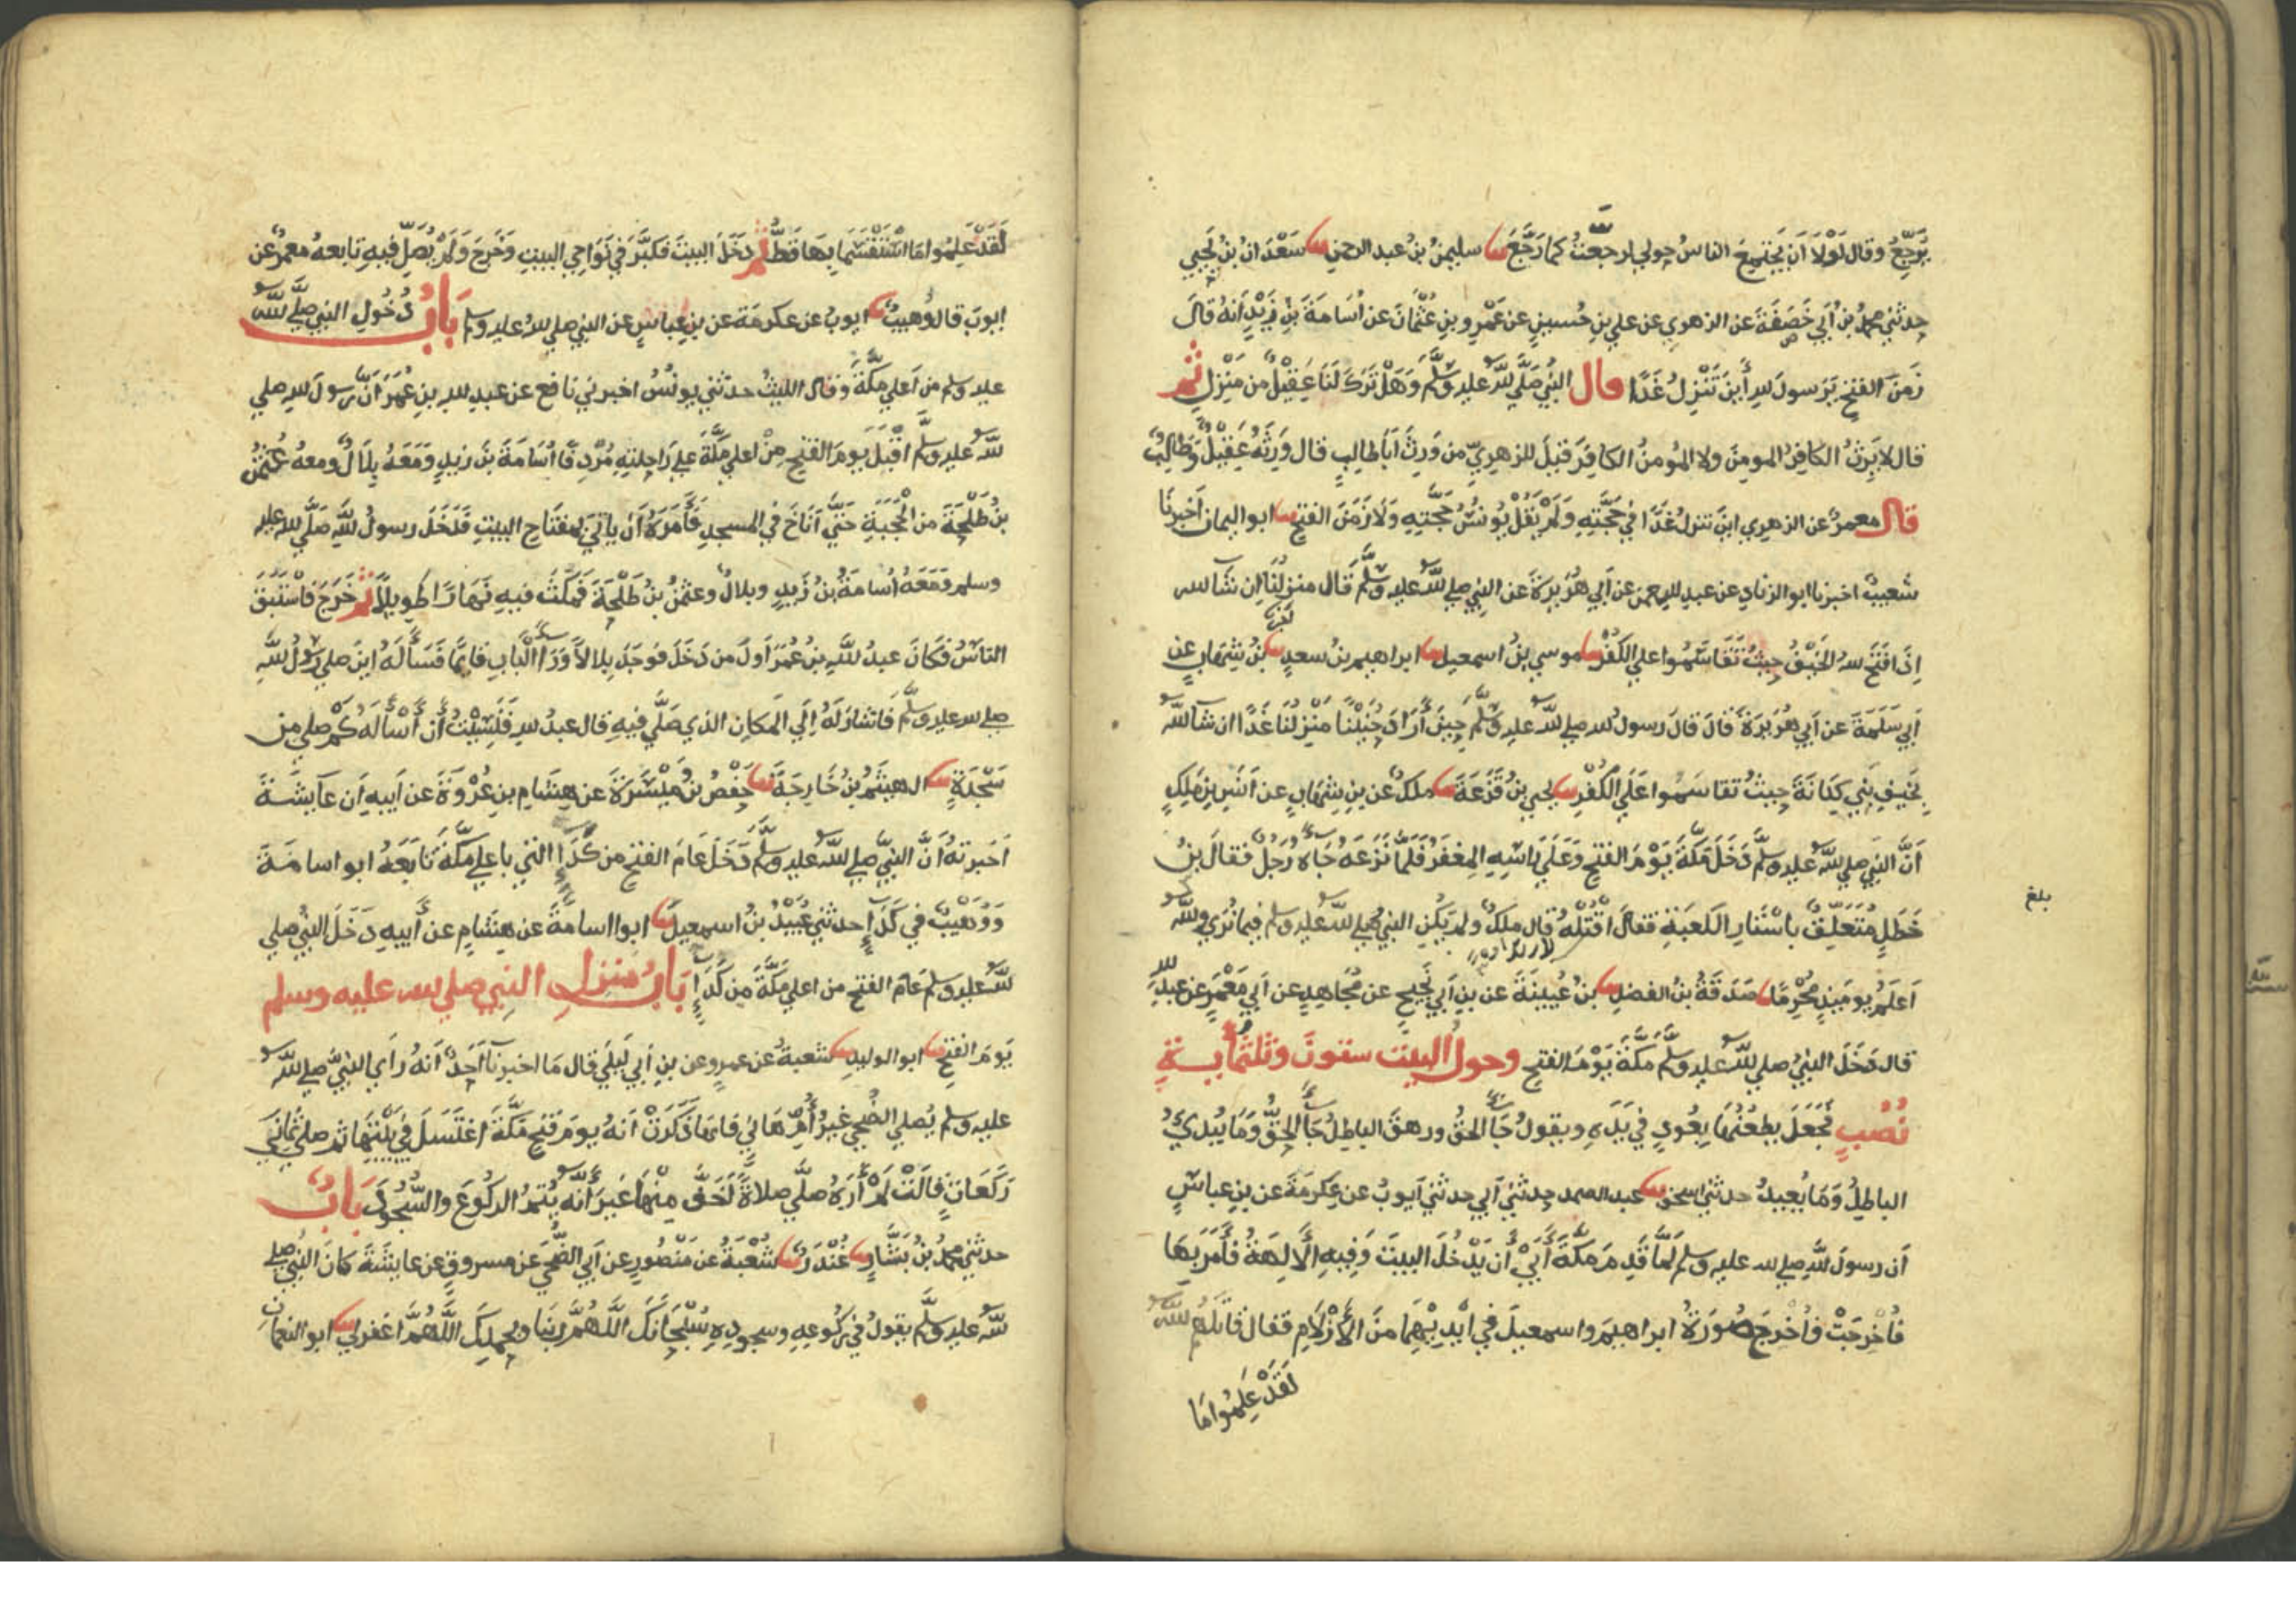 يُرَجِّعُ وقال لَوْلَا اَن يَجْتَمِعَ الناسُ حولي لرجعْتُ كما رَجَّعَ ثنا سليمنُ بنُ عبد الرحمن ثنا سَعْدَانُ بنُ يَحيي
حدثني محمدُ بنُ أَبي حَفصَةَ عن الزهري عن علي بنِ حُسينٍ عن عَمْرِو بنِ عُثْمَانَ عن اُسَامَةَ بنِ زَيْدٍ اَنهُ قالَ
زَمنَ الفتحِ يَرَسولَ للهِ أَينَ تَنْزِلُ غَدًا قال النبيُ صَلَّي للهُ عليه وسَلَّمَ وَهَلْ تَرَكَ لَنَا عَقِيْلٌ من مَنْزِلٍ ثم
قال لا يَرِثُ الكافِرُ المومِنَ ولا المُومنُ الكافِرَ قيلَ للزهرِيّ من وَرِثَ أَبَا طالِبٍ قال وَرِثَهُ عَقِيْلٌ وَطالِبٌ
قال معمرٌ عن الزهري اينَ تنزلُ غَدًا في حَجَّتِهِ وَلَمْ يَقُلْ يُونسُ حَجَّتِهِ وَلَا زَمَنَ الفتح ثنا ابو اليمان اَخبرنَا
شعيبٌ اخبرنا ابو الزنادِ عن عبدِ الرحمن عن اَبي هُرَيْرَةَ عن النبي صلي للهُ عليه وسَلَّمَ قَال منزِلُنَا اِن شَاالله
اِذَا فَتَحَ للهُ الخَيْفُ حيثُ تَقَاسَمُوا علي الكُفْرِ ثنا موسي بنُ اسمعيل ثنا ابراهيم بنُ سعدٍ ثنا بنُ شِهَابٍ عن
اَبي سَلَمَةَ عن اَبي هُرَيرَةَ قالَ قالَ رسولُ للهِ صلي للهُ عليه وسَلَّمَ حِينَ أَرَادَ حُنَيْنًا مَنْزِلُنَا غَدًا ان شآالله
بِخَيفِ بَنِي كنَانَةَ حيثُ تقاسَمُوا عَلَي الكُفْرِ ثنا يحيي بنُ قَزَعَةَ ثنا ملكٌ عن بنِ شِهَابٍ عن اَنسِ بنِ مَلِكٍ
اَنَّ النبي صلي للهُ عليه وسَلَّمَ دَخَلَ مَكَّةَ يَوْمَ الفتحِ وَعَلَي رَاسِهِ المِغفَرُ فَلَمَّا نَزَعَهُ جَاهُ رَجلٌ فقالَ بنُ
خَطَلٍ مُتَعَلِّقٌ باسْتَارِ الكعبَةِ فقالَ اقْتُلْهُ قال ملكٌ ولم يَكُنِ النبيُ صلي للهُ عليه وسلم فيما نُرَي وللهُ
اَعلَمُ يومَيِذٍ مُحْرِمًا ثنا صَدَقَةُ بنُ الفضلِ ثنا بنُ عُيينَةَ عن بنِ أَبي نَجِيحٍ عن مُجَاهِدٍ عن اَبي مَعْمَرٍ عن عبدِ لله
قال دَخَلَ النبيُ صلي للهُ عليه وسَلَّمَ مَكَّةَ يَوْمَ الفتح وحولَ البيت ستونَ وثلثمُايةِ
نُصُبٍ فَجَعَلَ يطعُنُهَا بِعُودٍ في يَدِهِ ويقولُ جَآ الحقُ وزهقَ الباطِلُ جَآ الحقُّ وَمَا يُبْدِئُ
الباطِلُ وَمَا يُعِيدُ حدثني اسحق ثنا عبد الصمد حدثني اَبي حدثني اَيوبُ عن عِكرِمَةَ عن بنِ عباسٍ
اَن رسولَ للهِ صلي لله عليه وسلم لمَّا قَدِمَ مَكَّةَ أَبَيْ أَن يَدْخُلَ البيتَ وَفِيهِ الْآلِهَةُ فَأَمَرَ بهَا
فَاُخْرِجَتْ فَاُخْرِجَ صُورَةُ ابراهيمَ واسمعيلَ في اَيْدِيهِمَا منَ الأَزْلَامِ فقال قاتَلَهُمُ للهُ
لَقَدْ عَلِمُوا مَا
بلغ
لَقَدْ عَلِمُوا مَا اسْتَقْسَمَا بِهَا قَطُّ ثم دَخَلَ البيتَ فكَبَّرَ في نَوَاحِي البيتِ وَخَرجَ وَلَمْ يُصَلِّ فيهِ تابعهُ معمرٌ عن
ايوبَ قال وُهيبٌ ثنا ايوبُ عن عكرمَة عن بنِ عباسٍ عن النبي صلي للهُ عليه وسلم بَابُ دُخُولِ النبي صلَّي للهُ
عليه وسلم من اَعلي مَكَّةَ وقال الليثُ حدثني يونُسُ اخبرني نافع عن عبدِ للهِ بنِ عُمَرَ اَنَّ رسولَ للهِ صلي
للهُ عليه وسلَّم اَقْبَلَ يَومَ الفتحِ مِنْ اعلي مَكَّةَ علي رَاحِلتِهِ مُرْدِفًا اُسَامَةَ بنَ زيدٍ وَمَعَهُ بِلَالٌ ومعهُ عُثْمنُ
بنُ طَلْحَةَ من الْحَجَبَةِ حَتَّي اَنَاخَ في المسجدِ فَأَمَرَهُ أَن يَاتيَ بمفتَاحِ البيتِ فَدَخَلَ رسولُ للهِ صَلَّي للهُ عليه
وسلم وَمَعَهُ اُسَامَةُ بنُ زَيدٍ وبلالٌ وعثمنُ بنُ طَلْحَةَ فَمكَثَ فيهِ نَهَارًا طويلًا ثم خَرَجَ فَاسْتَبَقَ
الناسُ فكَانَ عبدُ للهِ بنُ عُمَرَ اَولَ من دَخَلَ فوَجَدَ بِلالاً وَرَآ الْبَابِ قايمًا فَسَأَلَهُ اينَ صلي رسولُ للهِ
صلي لله عليه وسلَّم فاَشارَ لَهُ اِلَي المَكانِ الذي صَلَّي فيهِ قال عبدُ للهِ فَنَسِيْتُ أَن أَسْأَلَهُ كمْ صلي من
سَجْدَةٍ ثنا الهيثمُ بنُ خَارِجَةَ ثنا حَفْصُ بنُ مَيْسَرَةَ عن هِشَامِ بنِ عُرْوَةَ عن اَبيهِ اَن عَايِشَةَ
اَخبرَتهُ اَنَّ النبيَّ صلي للهُ عليه وسلَّمَ دَخَلَ عَامَ الفتحِ من كَدَآءٍ التي باعلي مكَّةَ تَابَعَهُ ابو اسامَةَ
وَوُهَيْبٌ في كَدَآءٍ حدثني عُبَيْدُ بنُ اسمعيل ثنا ابوا اسامَةَ عن هِشَامٍ عن أَبيهِ دَخَلَ النبيُ صلي
للهُ عليه وسلم عَامَ الفتحِ من اعلي مَكَّةَ من كَدَآءٍ بَابُ مَنزلِ النبِي صلي لله عليه وسلم
يَومَ الفتحِ ثنا ابو الوليدِ ثنا شعبةُ عن عمرٍو عن بنِ اَبي لَيلَي قال مَا اخبرنا اَحَدٌ اَنهُ رَاَي النبيَّ صلي للهُ
عليه وسلم يُصلي الضُّحي غيرُ أُمِّ هَانِيٍ فَانهَا ذَكَرَتْ اَنهُ يومَ فتحِ مَكَّةَ اغتَسَلَ في بَيْتِهَا ثم صلي ثَمانيَ
رَكَعَاتٍ قالَتْ لَمْ أَرَهُ صلَّي صلاةً اَخَفَّ مِنْهَا غيرَ أَنَّه يُتِمُّ الركُوعَ والسُّجُودَ بَابٌ
حدثني محمدُ بنُ بَشَّارٍ ثنا غُنْدَرٌ ثنا شُعْبَةُ عن مَنْصُورٍ عن اَبي الضُّحَي عن مسروقٍ عن عايشَةَ كانَ النبيُ صلي
للهُ عليه وسلَّم يقولُ في رُكُوعِهِ وسجودِهِ سُبْحَانَكَ اللَّهُمَّ ربَنَا وبحمدِكَ اللَّهُمَّ اغفرلي ثنا ابو النعمَانِ